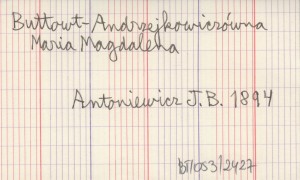 Buttowt-Andrzejkowiczówna
Maria Magdalena
Antoniewicz J.B. 1894
bł/053/2427